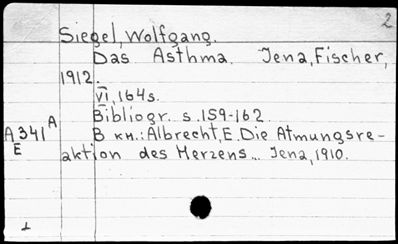 2
Siegel, Wolfgang.
Das Asthma. Jena, Fischer,
1912.
VI, 164s.
Bibliogr. s. 159-162
A 341 A
E
В кн.: Albrecht, E. Die Atmungsre-
aktion des Herzens... Jena, 1910.
1